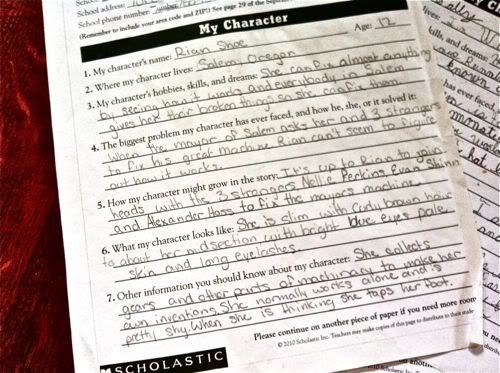 School address:
School phone number: number
(Remember to include your area code and ZIP!) See page 29 of the
My Character
1. My character's name: Rian Shoe Age: 12
2. Where my character lives: Salem, Oregon
3. My character's hobbies, skills, and dreams: She can fix almost anything
by seeing how it works and everybody in Salem
gives her their broken things so she can fix them
4. The biggest problem my character has ever faced, and how he, she, or it solved it:
When the mayor of Salem asks her and 3 strangers
to fix his great machine Rian can't seem to figure
out how it works.
5. How my character might grow in the story: It's up to Rian to join
heads with the 3 strangers, Nellie Perkins, Evan Skinn
and Alexander Hoss to fix the mayor's machine
6. What my character looks like: She is slim with Curly brown hair
to about her midsection with bright blue eyes pale
skin and long eyelashes
7. Other information you should know about my character: She collects
gears and other parts of machinary to make her
own inventions. She normally works alone and is
pretty shy. When she is thinking she taps her foot.
Please continue on another piece of paper if you need more room
© 2010 Scholastic Inc. Teachers may copies of this page to distribute to their
SCHOLASTIC
lives: In
skills, and dreams:
has ever faced,
2010 Scholastic Inc.